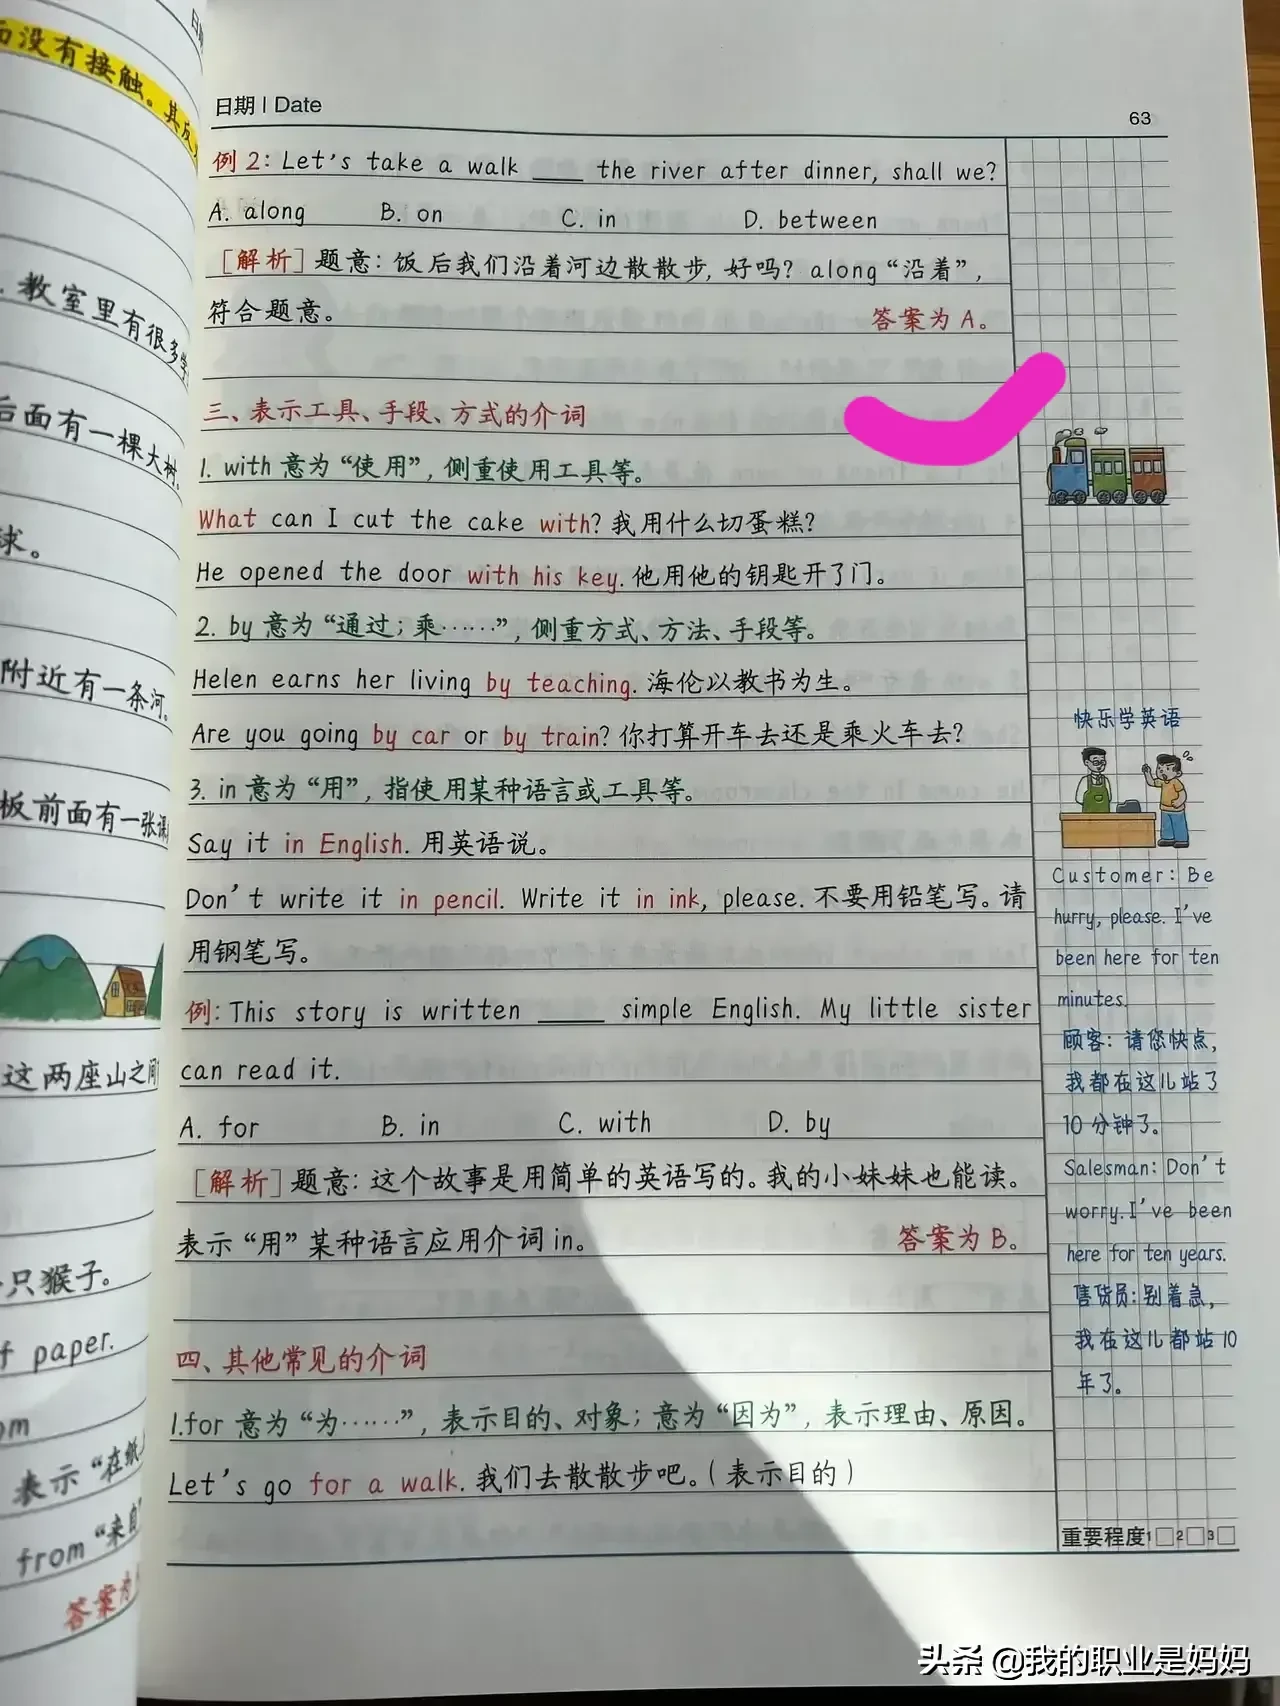 面没有接触。其反
教室里有很多学
后面有一棵大树。
球。
附近有一条河。
板前面有一张课
这两座山之间
只猴子。
of paper.
om
表示“在纸上
from“来自
答案为
日期 | Date
63
例2: Let's take a walk ____ the river after dinner, shall we?
A. along B. on C. in D. between
[解析]题意：饭后我们沿着河边散散步，好吗？along“沿着”，
符合题意。 答案为A。
三、表示工具、手段、方式的介词
1. with 意为“使用”，侧重使用工具等。
What can I cut the cake with? 我用什么切蛋糕？
He opened the door with his key. 他用他的钥匙开了门。
2. by 意为“通过；乘……”，侧重方式、方法、手段等。
Helen earns her living by teaching. 海伦以教书为生。
Are you going by car or by train? 你打算开车去还是乘火车去？
3. in 意为“用”，指使用某种语言或工具等。
Say it in English. 用英语说。
Don't write it in pencil. Write it in ink, please. 不要用铅笔写。请
用钢笔写。
例: This story is written ____ simple English. My little sister
can read it.
A. for B. in C. with D. by
[解析]题意：这个故事是用简单的英语写的。我的小妹妹也能读。
表示“用”某种语言应用介词in。 答案为B。
四、其他常见的介词
1.for 意为“为……”，表示目的、对象；意为“因为”，表示理由、原因。
Let's go for a walk. 我们去散散步吧。（表示目的）
快乐学英语
Customer: Be
hurry, please. I've
been here for ten
minutes.
顾客：请您快点，
我都在这儿站了
10分钟了。
Salesman: Don't
worry. I've been
here for ten years.
售货员：别着急，
我在这儿都站10
年了。
重要程度 1□ 2□ 3□
头条 @我的职业是妈妈